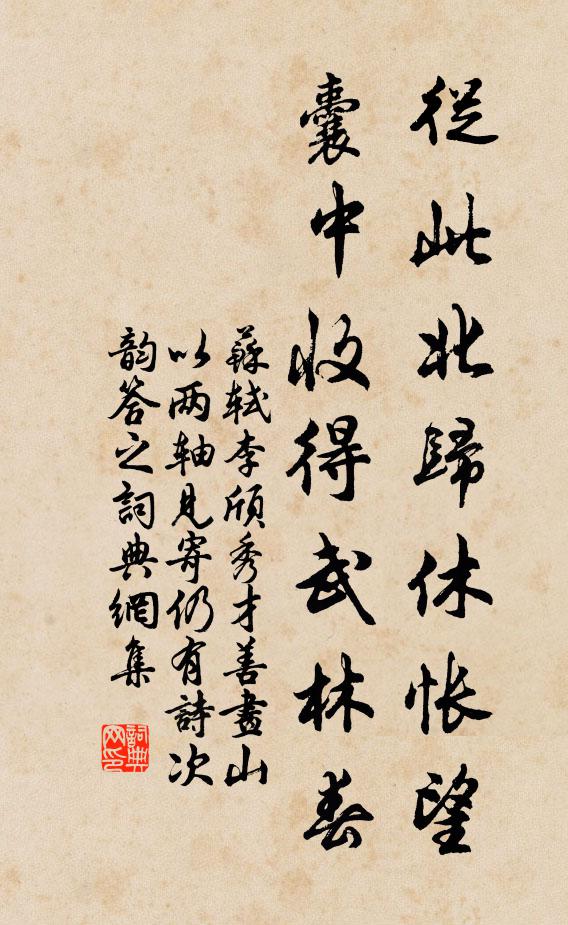 從此北歸休悵望
囊中收得武林春
蘇軾李頎秀才善畫山
以两轴見寄仍有詩次
韵答之詞典網集
詞典网印